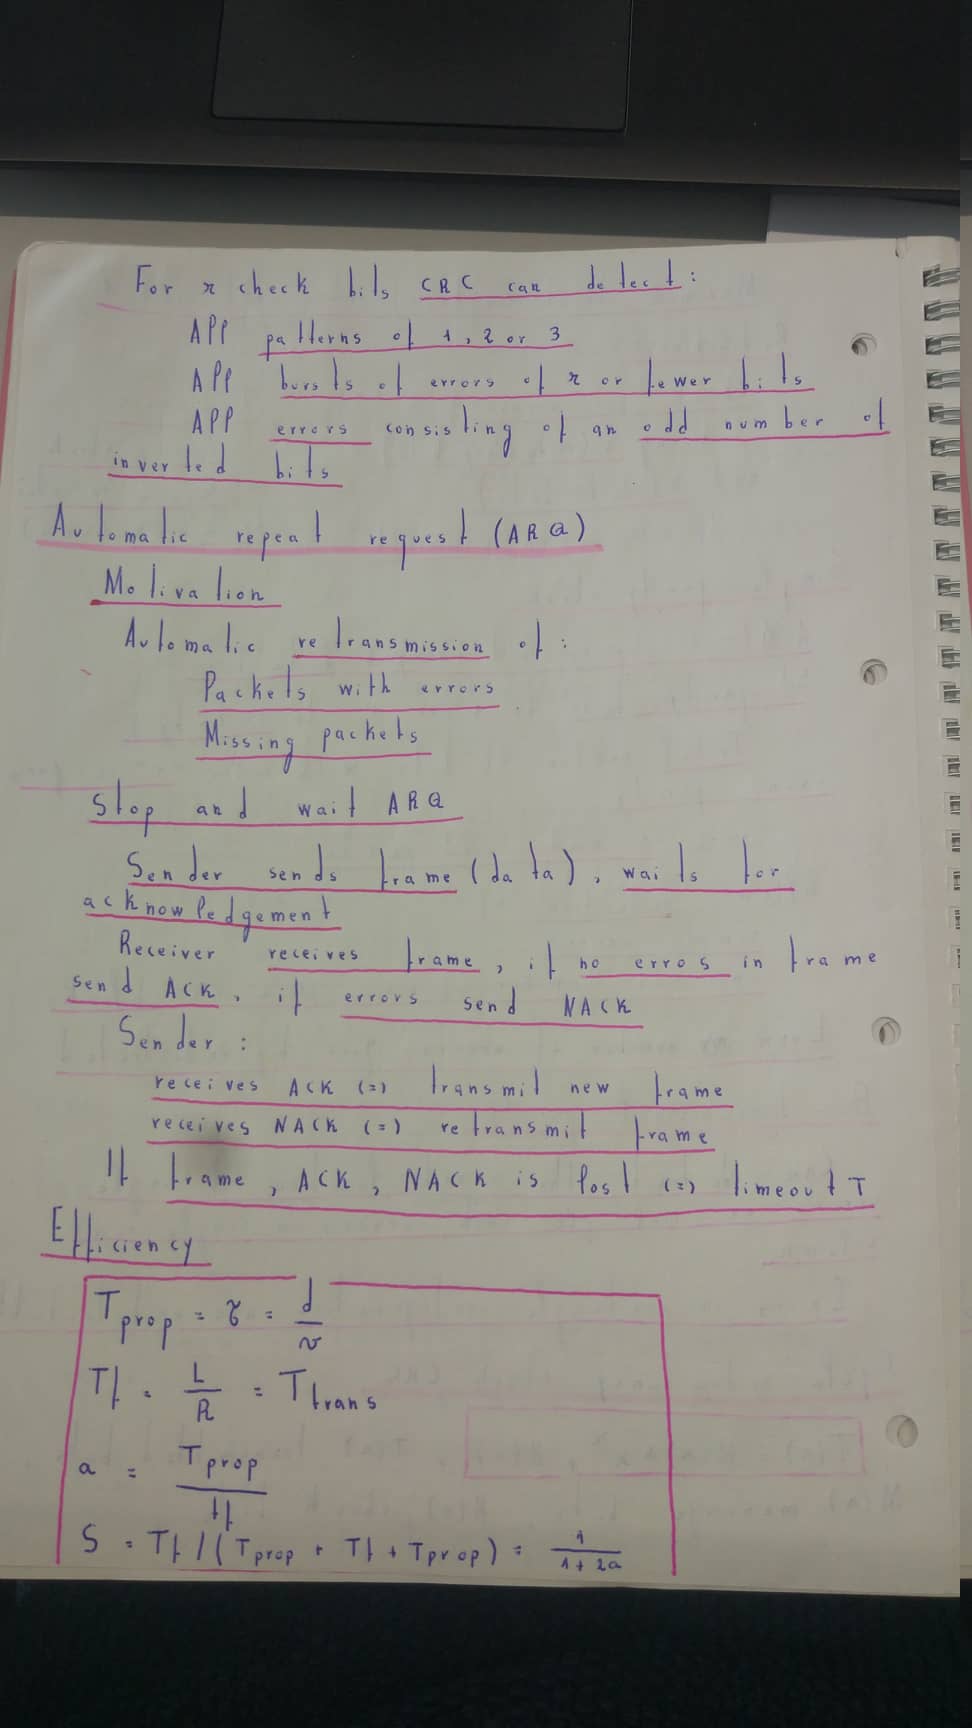 For r check bits CRC can detect:
All patterns of 1, 2 or 3
All bursts of errors of r or fewer bits
All errors consisting of an odd number of
inverted bits
Automatic repeat request (ARQ)
Motivation
Automatic retransmission of:
Packets with errors
Missing packets
Stop and wait ARQ
Sender sends frame (data), waits for
acknowledgement
Receiver receives frame, if no erros in frame
send ACK, if errors send NACK
Sender:
receives ACK (=) transmit new frame
receives NACK (=) retransmit frame
If frame, ACK, NACK is lost (=) timeout T
Efficiency
Tprop = τ = d/v
Tf = L/R = Ttrans
a = Tprop/Tf
S = Tf/(Tprop + Tf + Tprop) = 1/1+2a